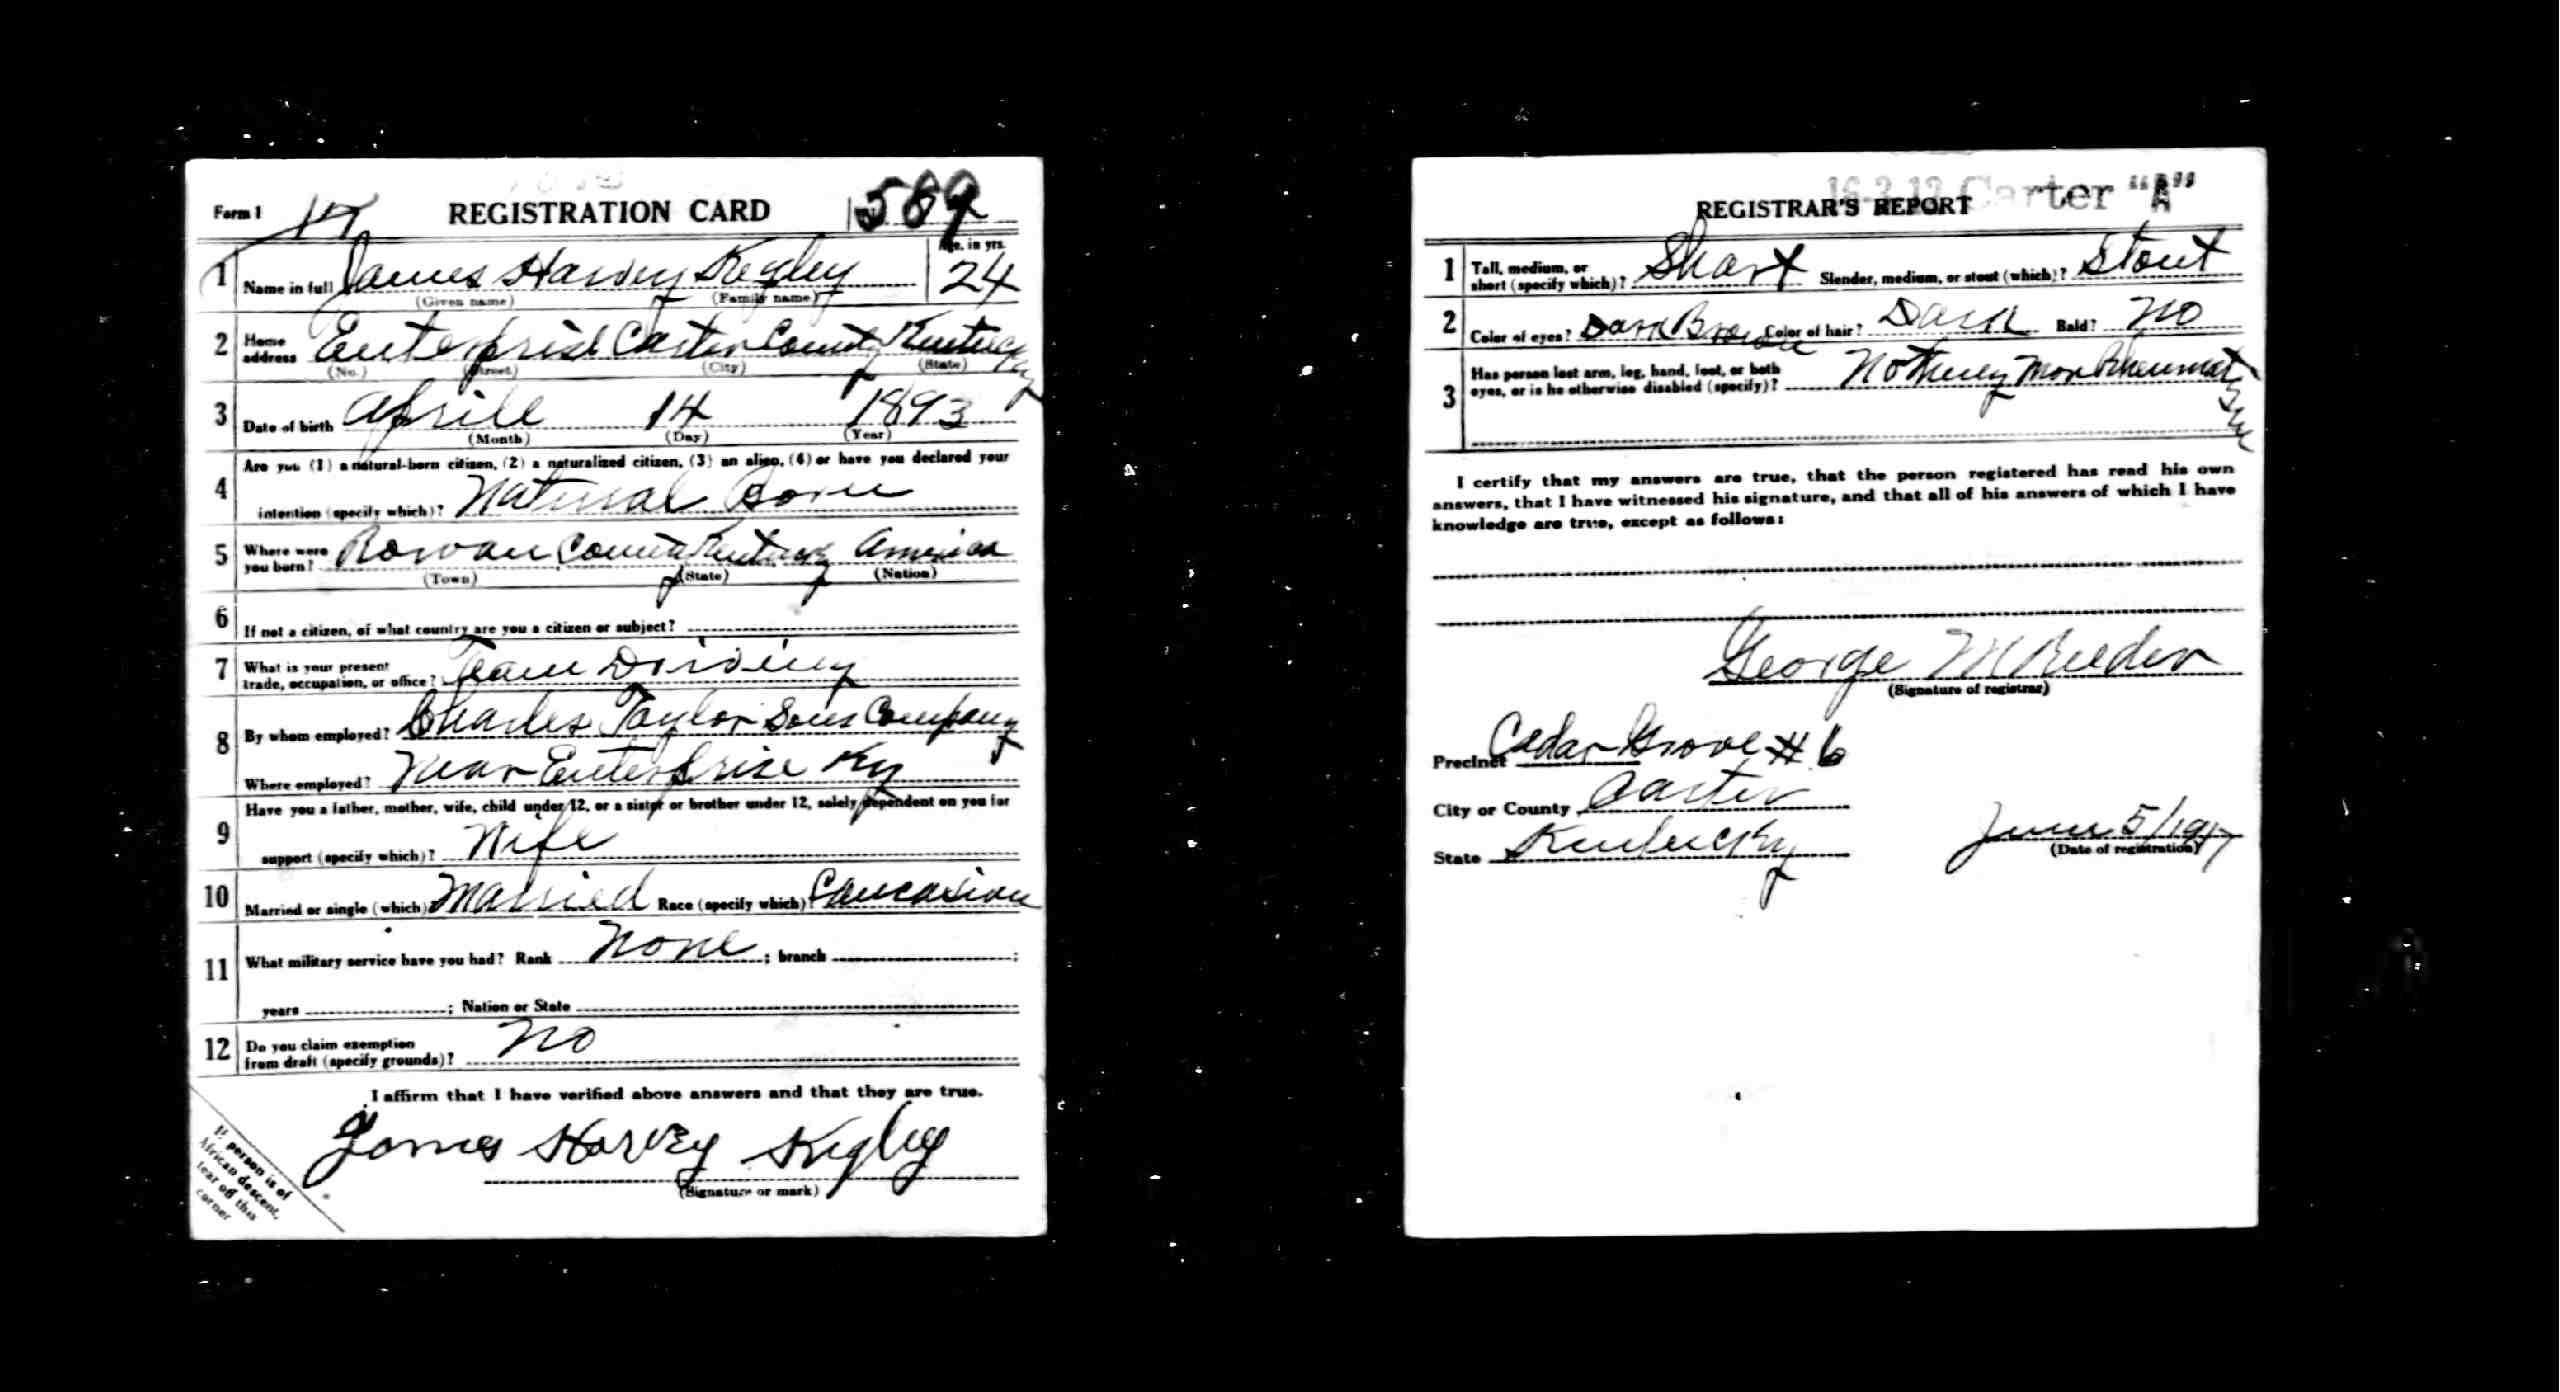 Form 1 REGISTRATION CARD 589
Age, in yrs.
1 Name in full James Harvey Kegley 24
(Given name) (Family name)
2 Home address Enterprise Carter County Kentucky
(No.) (Street) (City) (State)
3 Date of birth Aprile 14 1893
(Month) (Day) (Year)
4 Are you (1) a natural-born citizen, (2) a naturalized citizen, (3) an alien, (4) or have you declared your
intention (specify which)? Natural Born
5 Where were you born? Rowan County Kentucky America
(Town) (State) (Nation)
6 If not a citizen, of what country are you a citizen or subject?
7 What is your present
trade, occupation, or office? Team Driving
8 By whom employed? Charles Taylor Sons Company
Where employed? Near Enterprise Ky
9 Have you a father, mother, wife, child under 12, or a sister or brother under 12, solely dependent on you for
support (specify which)? Wife
10 Married or single (which) Married Race (specify which) Caucasian
11 What military service have you had? Rank None ; branch ;
years ; Nation or State
12 Do you claim exemption
from draft (specify grounds)? No
I affirm that I have verified above answers and that they are true.
James Harvey Kegley
(Signature or mark)
If person is of
African descent,
tear off this
corner
Carter "A"
REGISTRAR'S REPORT
1 Tall, medium, or
short (specify which)? Short Slender, medium, or stout (which)? Stout
2 Color of eyes? Dark Brown Color of hair? Dark Bald? No
3 Has person lost arm, leg, hand, foot, or both
eyes, or is he otherwise disabled (specify)? Nothing Mor Rheumatism
I certify that my answers are true, that the person registered has read his own
answers, that I have witnessed his signature, and that all of his answers of which I have
knowledge are true, except as follows:
George M Reeder
(Signature of registrar)
Precinct Cedar Grove #6
City or County Carter
State Kentucky June 5/1917
(Date of registration)